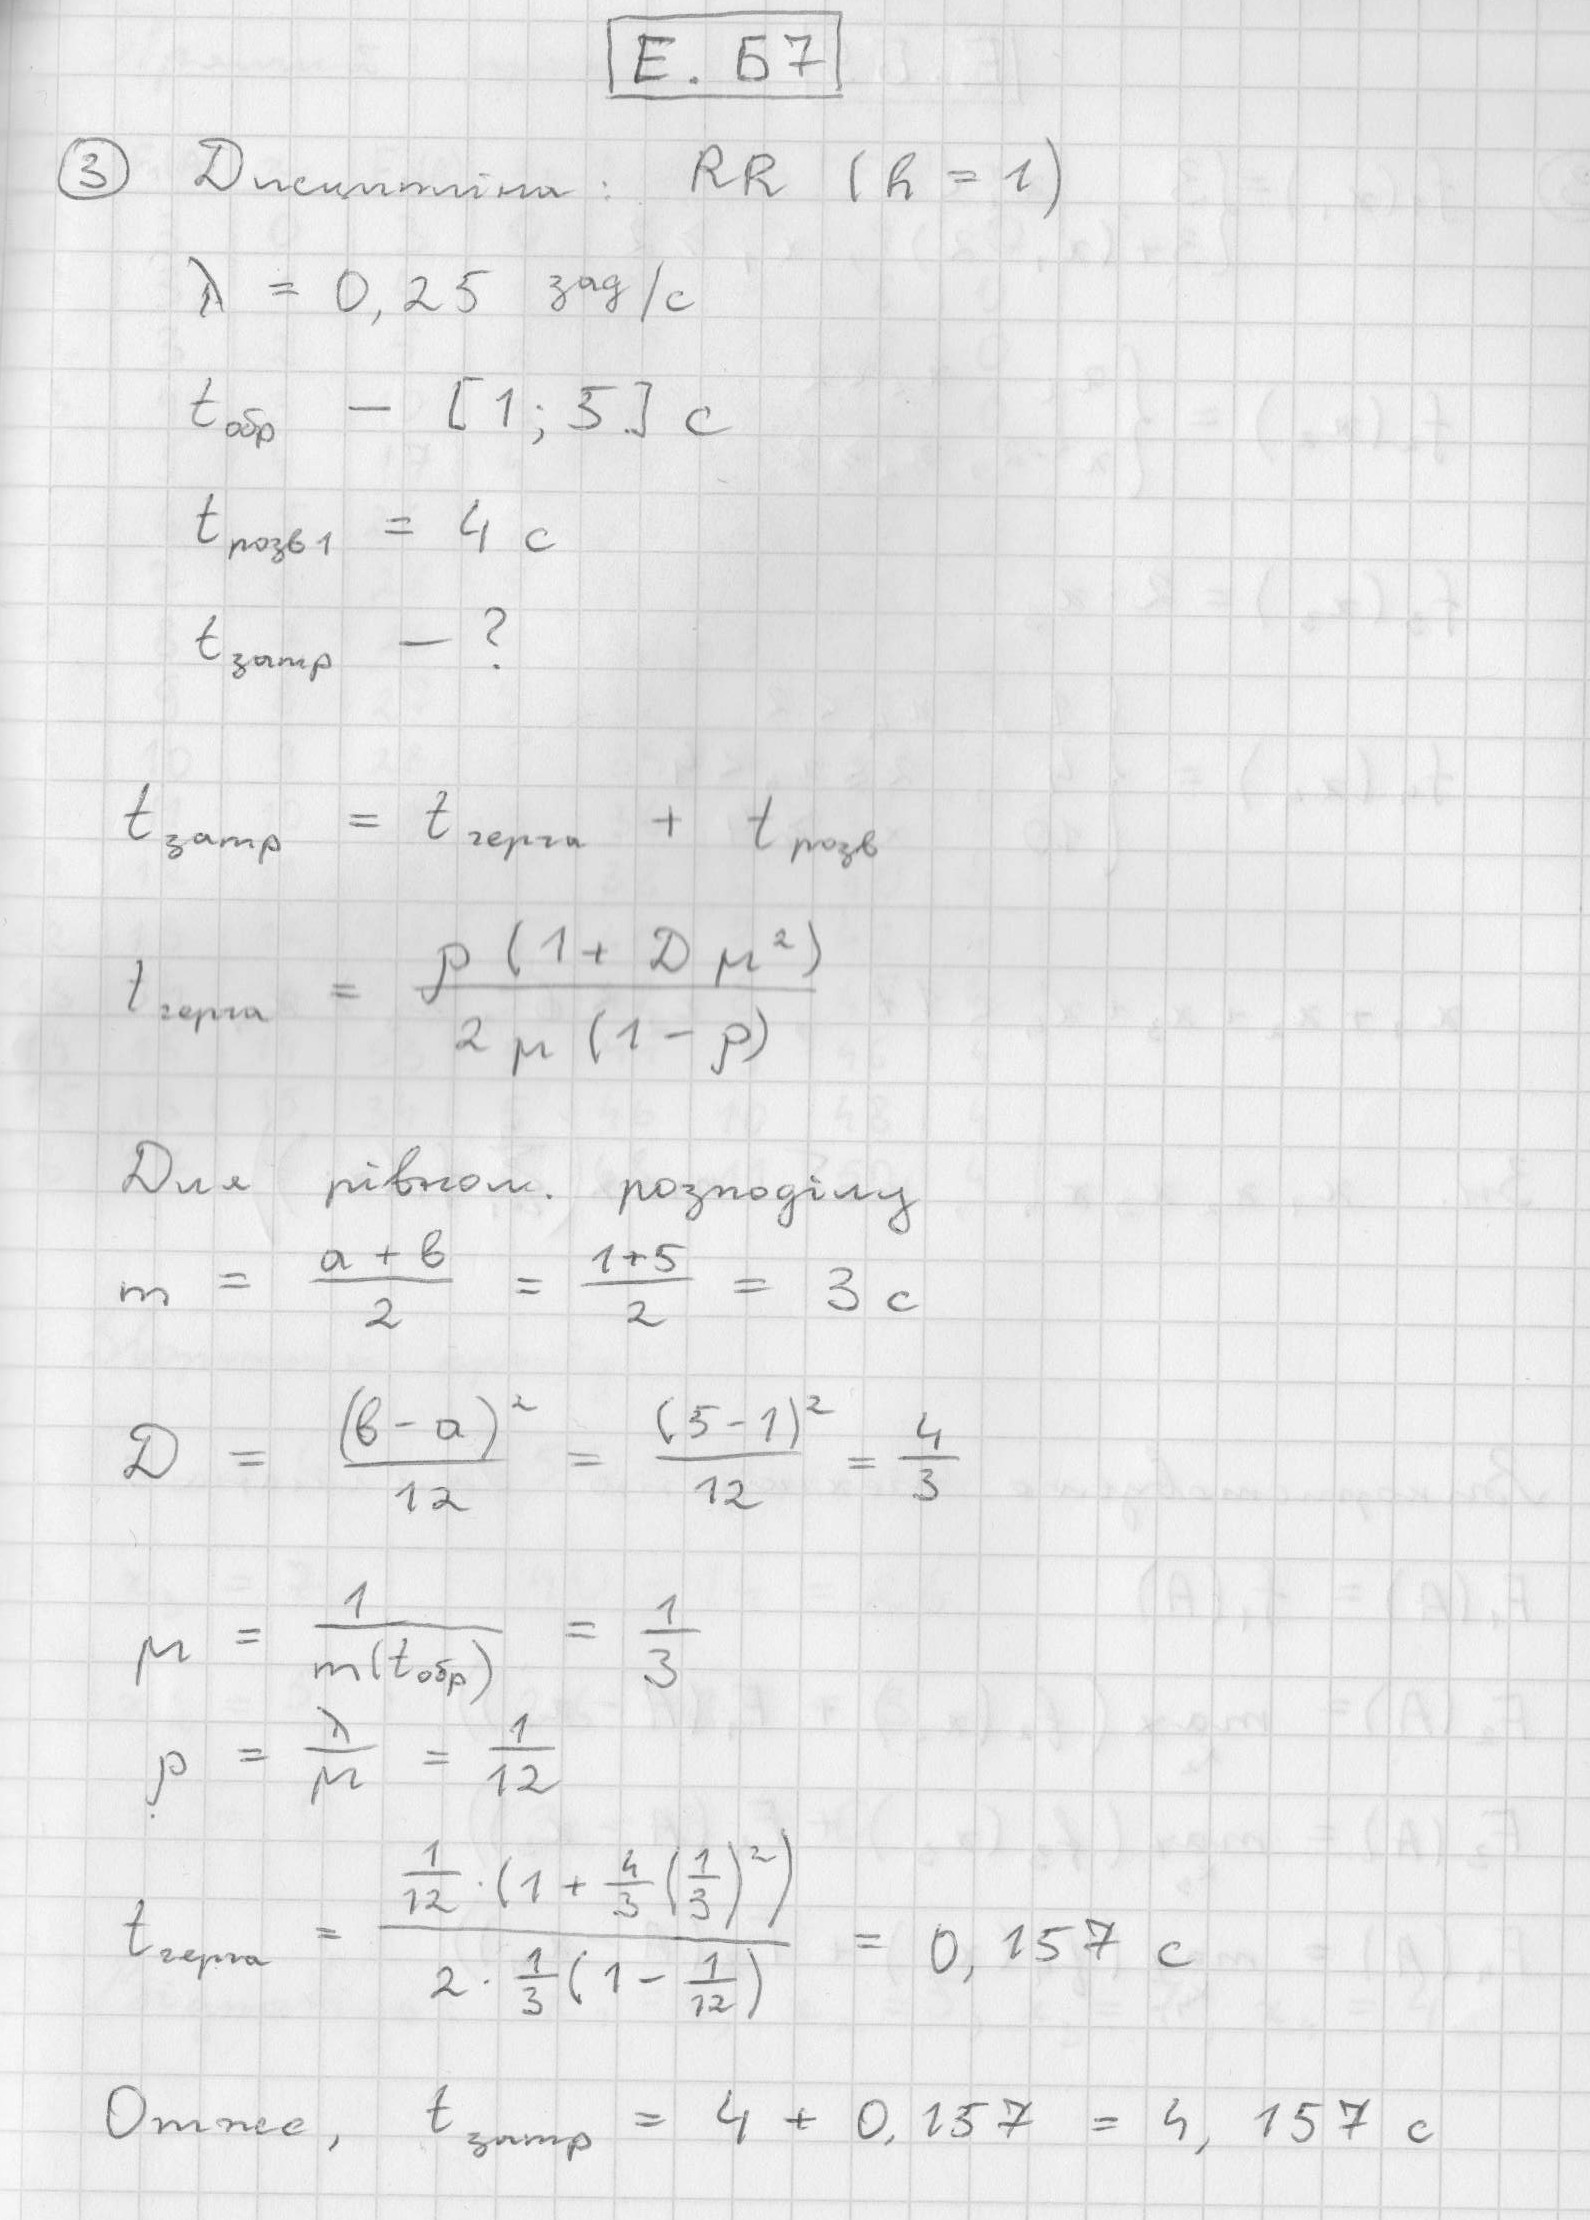 Е. Б7
3 Дисципліна: RR (h = 1)
λ = 0,25 зад/с
t обр – [1; 5] с
t розв1 = 4 с
t затр – ?
t затр = t черга + t розв
t черга = ρ (1 + D μ²) / 2 μ (1 – ρ)
Для рівном. розподілу
m = (a + b) / 2 = (1+5) / 2 = 3 с
D = (b – a)² / 12 = (5 – 1)² / 12 = 4/3
μ = 1 / m(t обр) = 1/3
ρ = λ/μ = 1/12
t черга = 1/12 · (1 + 4/3 (1/3)²) / 2 · 1/3 (1 – 1/12) = 0,157 с
Отже, t затр = 4 + 0,157 = 4,157 с